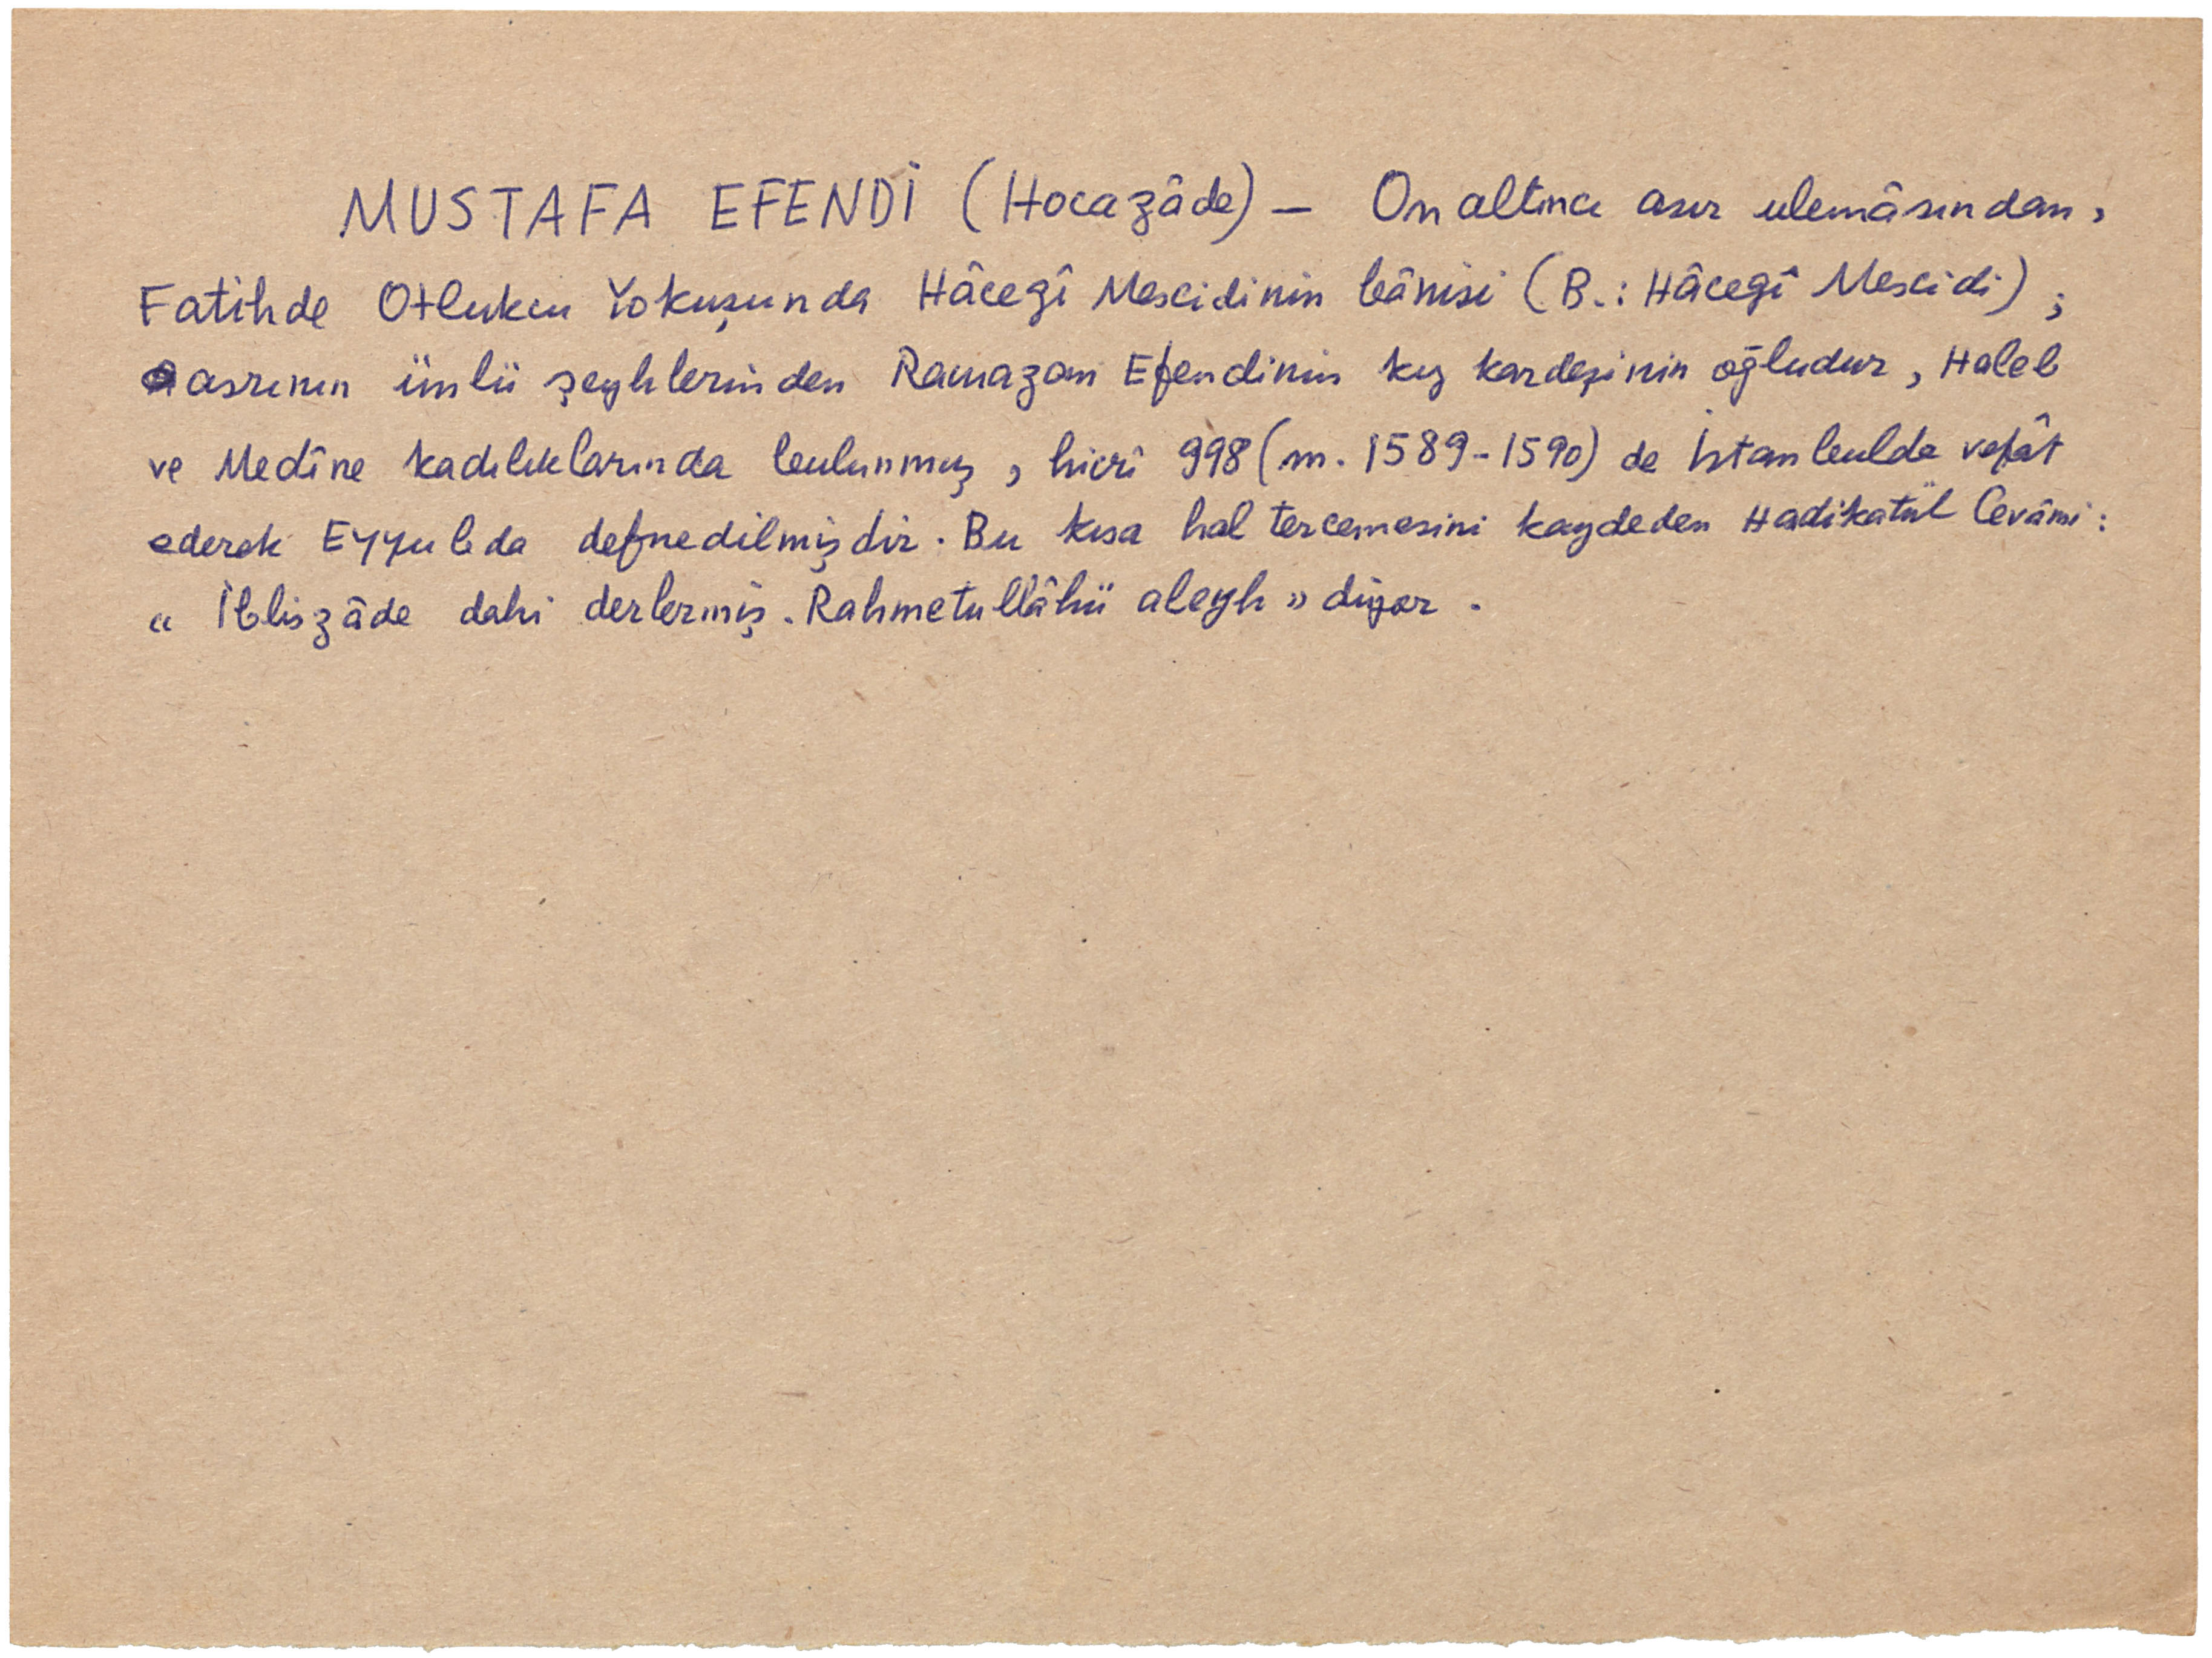 MUSTAFA EFENDİ (Hocazâde) — Onaltıncı asır ulemâsından,
Fatihde Otlukcu Yokuşunda Hâcegî Mescidinin bânisi (B.: Hâcegî Mescidi);
asrının ünlü şeyhlerinden Ramazan Efendinin kız kardeşinin oğludur, Haleb
ve Medîne kadılıklarında bulunmuş, hicrî 998 (m. 1589-1590) de İstanbulda vefât
ederek Eyyubda defnedilmişdir. Bu kısa hal tercemesini kaydeden Hadikatül Cevâmi:
« İbliszâde dahi derlermiş. Rahmetullâhü aleyh » diyor.